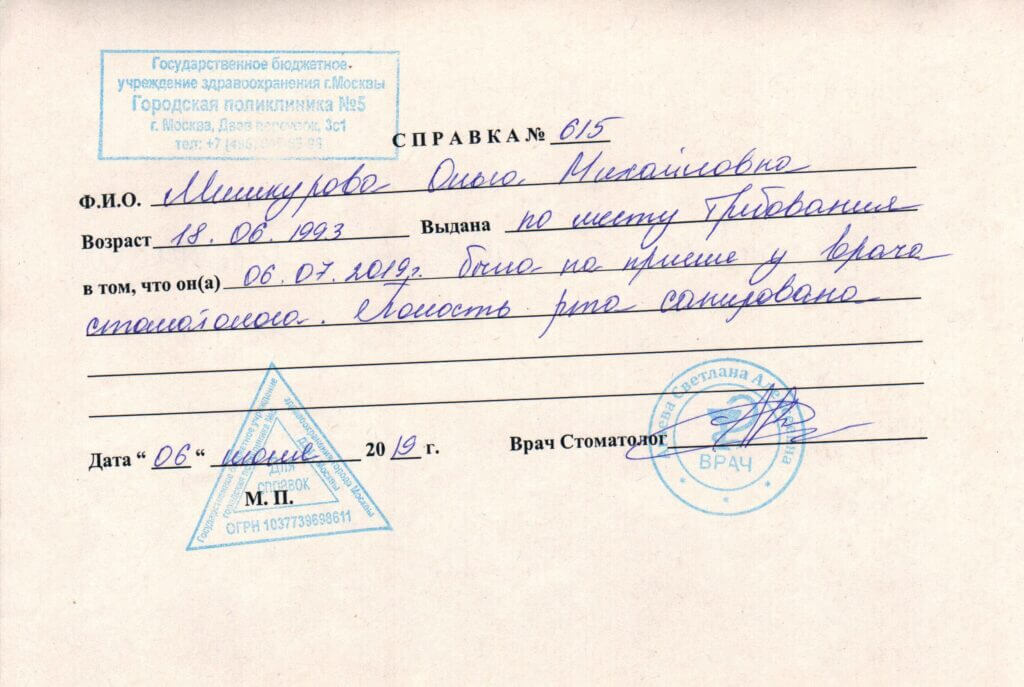 Государственное бюджетное
учреждение здравоохранения г.Москвы
Городская поликлиника №5
г. Москва, 3с1
тел: +7
СПРАВКА № 615
Ф.И.О. Мишкурова Ольга Михайловна
Возраст 18.06.1993 Выдана по месту требования
в том, что он(а) 06.07.2019г. была на приеме у врача
стоматолога. Полость рта санирована
Дата “ 06 “ 20 19 г. Врач Стоматолог
М. П.
Государственное бюджетное учреждение
здравоохранения города Москвы
городская поликлиника №5
ДЗ г. Москвы
Для
справок
ОГРН 1037739698611
Светлана
ВРАЧ